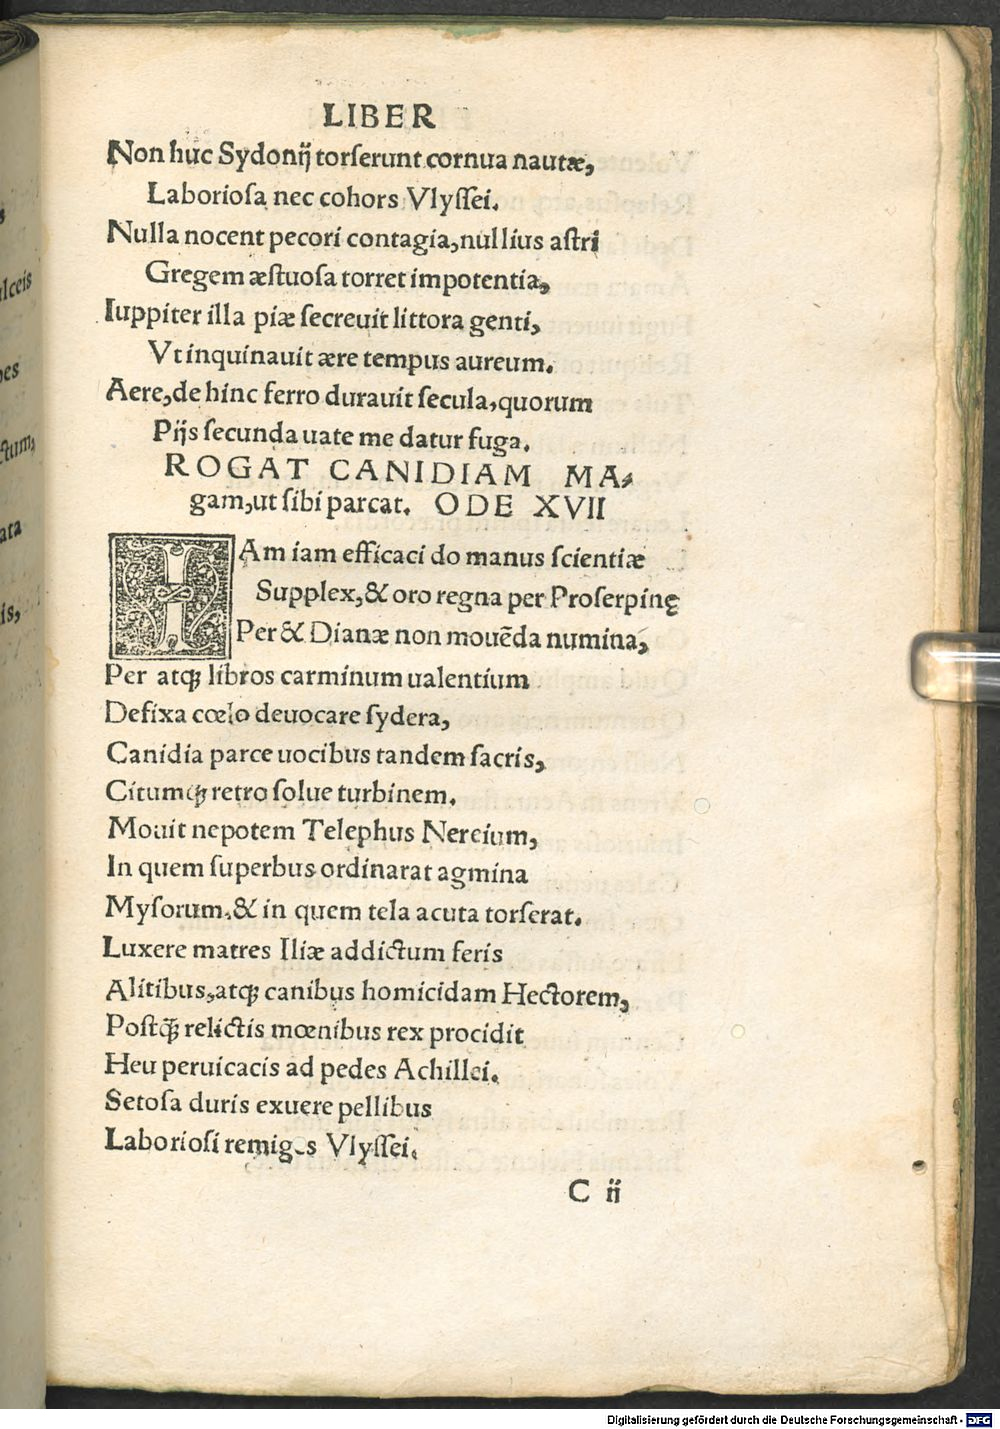 LIBER
Non huc Sydonij torſerunt cornua nautæ,
Laborioſa nec cohors Vlyſſei.
Nulla nocent pecori contagia, nullius aſtri
Gregem æſtuoſa torret impotentia,
Iuppiter illa piæ ſecreuit littora genti,
Vt inquinauit ære tempus aureum.
Aere, de hinc ferro durauit ſecula, quorum
Pijs ſecunda uate me datur fuga.
ROGAT CANIDIAM MA-
gam, ut ſibi parcat. ODE XVII
IAm iam efficaci do manus ſcientiæ
Supplex, & oro regna per Proſerpinę
Per & Dianæ non mouēda numina,
Per atqȝ libros carminum ualentium
Defixa cœlo deuocare ſydera,
Canidia parce uocibus tandem ſacris,
Citumqȝ retro ſolue turbinem.
Mouit nepotem Telephus Nereium,
In quem ſuperbus ordinarat agmina
Myſorum, & in quem tela acuta torſerat.
Luxere matres Iliæ addictum feris
Alitibus, atqȝ canibus homicidam Hectorem,
Poſtqȝ̃ relictis mœnibus rex procidit
Heu peruicacis ad pedes Achillei.
Setoſa duris exuere pellibus
Laborioſi remiges Vlyſſei.
C ij
Digitalisierung gefördert durch die Deutsche Forschungsgemeinschaft - DFG